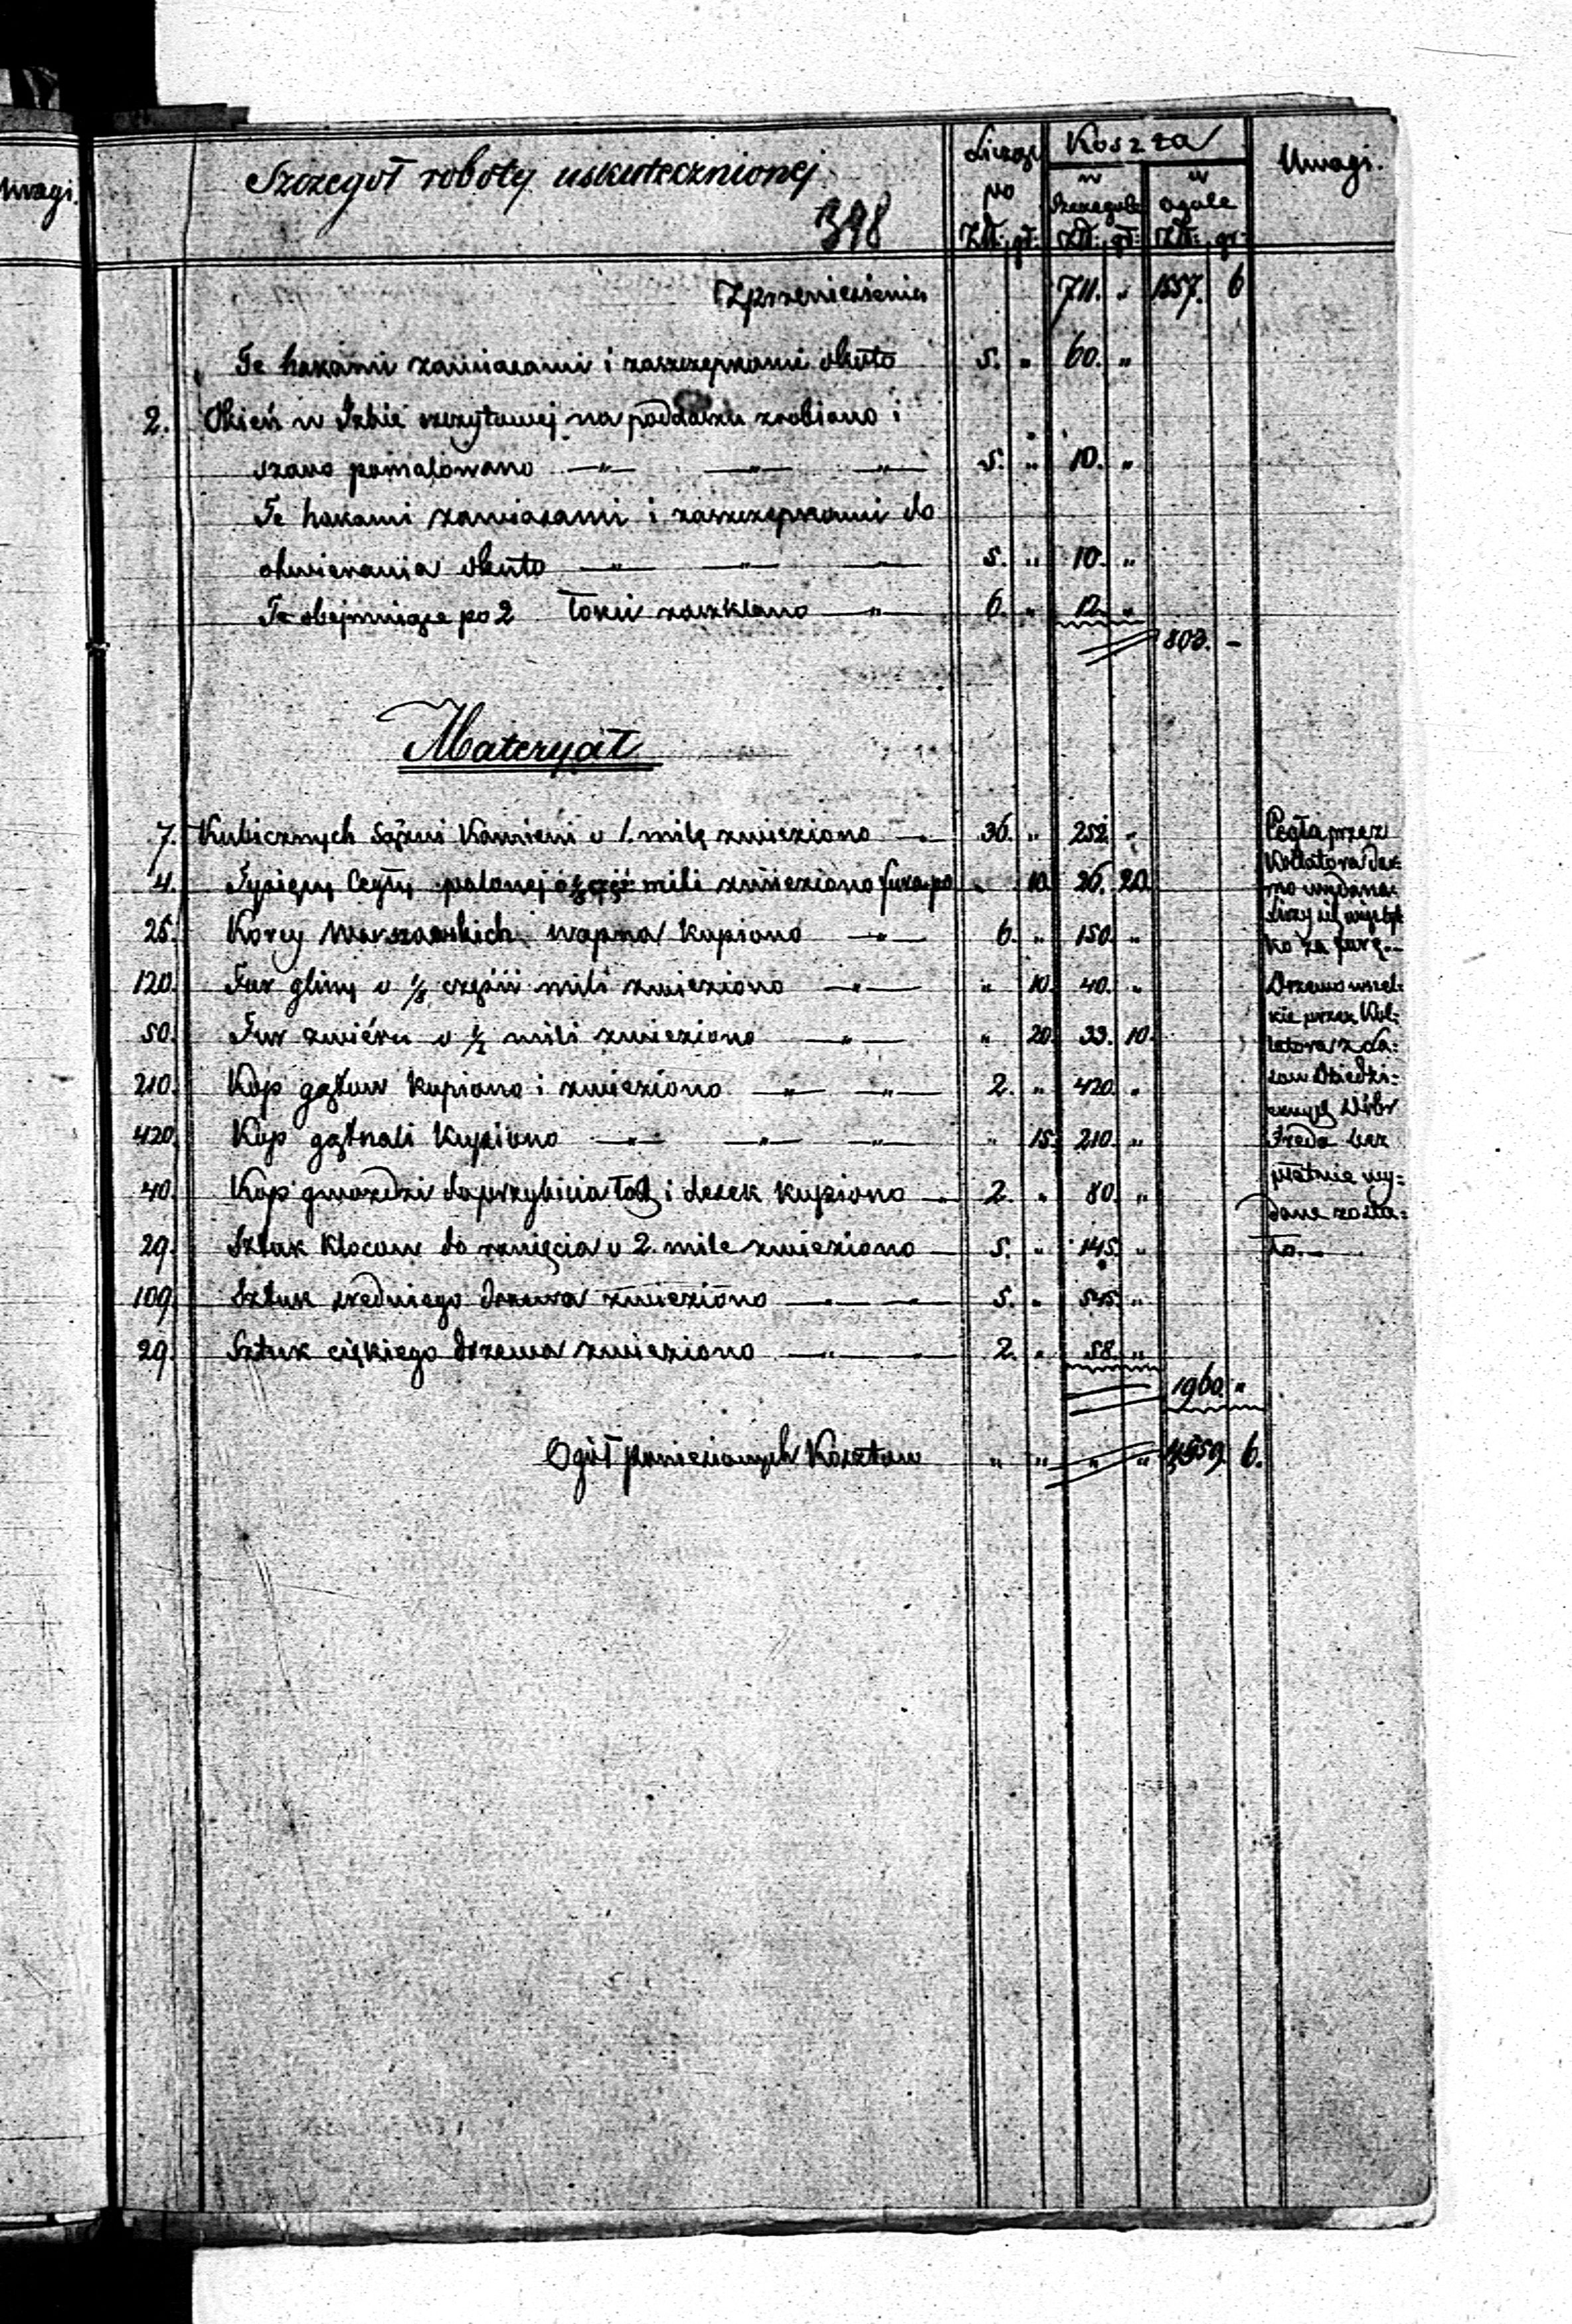 Uwagi.
Szczegół roboty uskutecznionej
398
Licząc po Złł: gr:
Koszta
w szczególe Złł: gr:
w ogóle Złł: gr:
Uwagi.
Z przeniesienia 711. „ 1557. 6
Te hakami zawiasami i zaszczepkami okuto 5. „ 60. „
2. Okien w Izbie szczytowej na poddaszu zrobiono i
szaro pomalowano —„— —„— —„— 5. „ 10. „
Te hakami zawiasami i zaszczepkami do
otwierania okuto —„— —„— — 5. „ 10. „
Te obejmujące po 2 zaszklono —„— 6. „ 12. „
803. -
Materyał
7. Kubicznych Sążni Kamieni o 1. milę zwieziono — 36. „ 252. „
4. Tysięcy Cegły palonej mili zwieziono fura po „ 10. 26. 20.
25. Korcy Warszawskich wapna kupiono —„— 6. „ 150. „
120. Fur gliny o 1/8 części mili zwieziono —„— „ 10. 40. „
50. Fur żwiéru o 1/2 mili zwieziono —„— „ 20. 33. 10.
210. Kop gątów kupiono i zwieziono —„— —„— 2. „ 420. „
420. Kop gątnali Kupiono —„— —„— —„— „ 15. 210. „
40. Kop gwoździ do przybicia łat i desek kupiono — 2. „ 80. „
29. Sztuk kloców do rznięcia o 2. mile zwieziono — 5. „ 145. „
109. Sztuk średniego drzewa zwieziono —„— 5. „ 545. „
29. Sztuk cięskiego drzewa zwieziono —„— 2. „ 58. „
1960. „
Ogół poniesionych Kosztów „ „ „ „ 6.
Cegła przez
Kollatora dar-
mo wydana:
liczy się więc tyl
ko za furę.—
Drzewo wszel-
kie przez Kol-
latora z La-
sów Dziedzi-
cznych Dóbr
bez
płatnie wy-
dane zosta-
ło.—